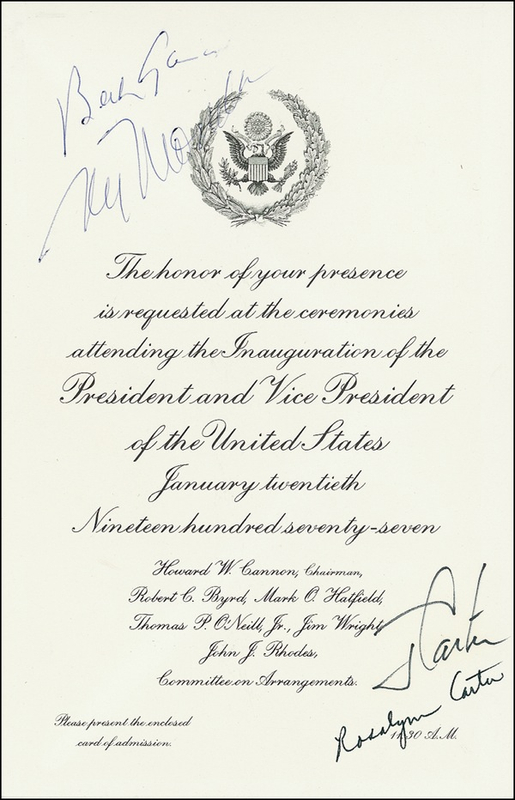 The honor of your presence
is requested at the ceremonies
attending the Inauguration of the
President and Vice President
of the United States
January twentieth
Nineteen hundred seventy-seven
Howard W. Cannon, Chairman,
Robert C. Byrd, Mark O. Hatfield,
Thomas P. O'Neill, Jr., Jim Wright,
John J. Rhodes,
Committee on Arrangements.
J Carter
Rosalynn Carter
Please present the enclosed
card of admission.
11:30 A.M.